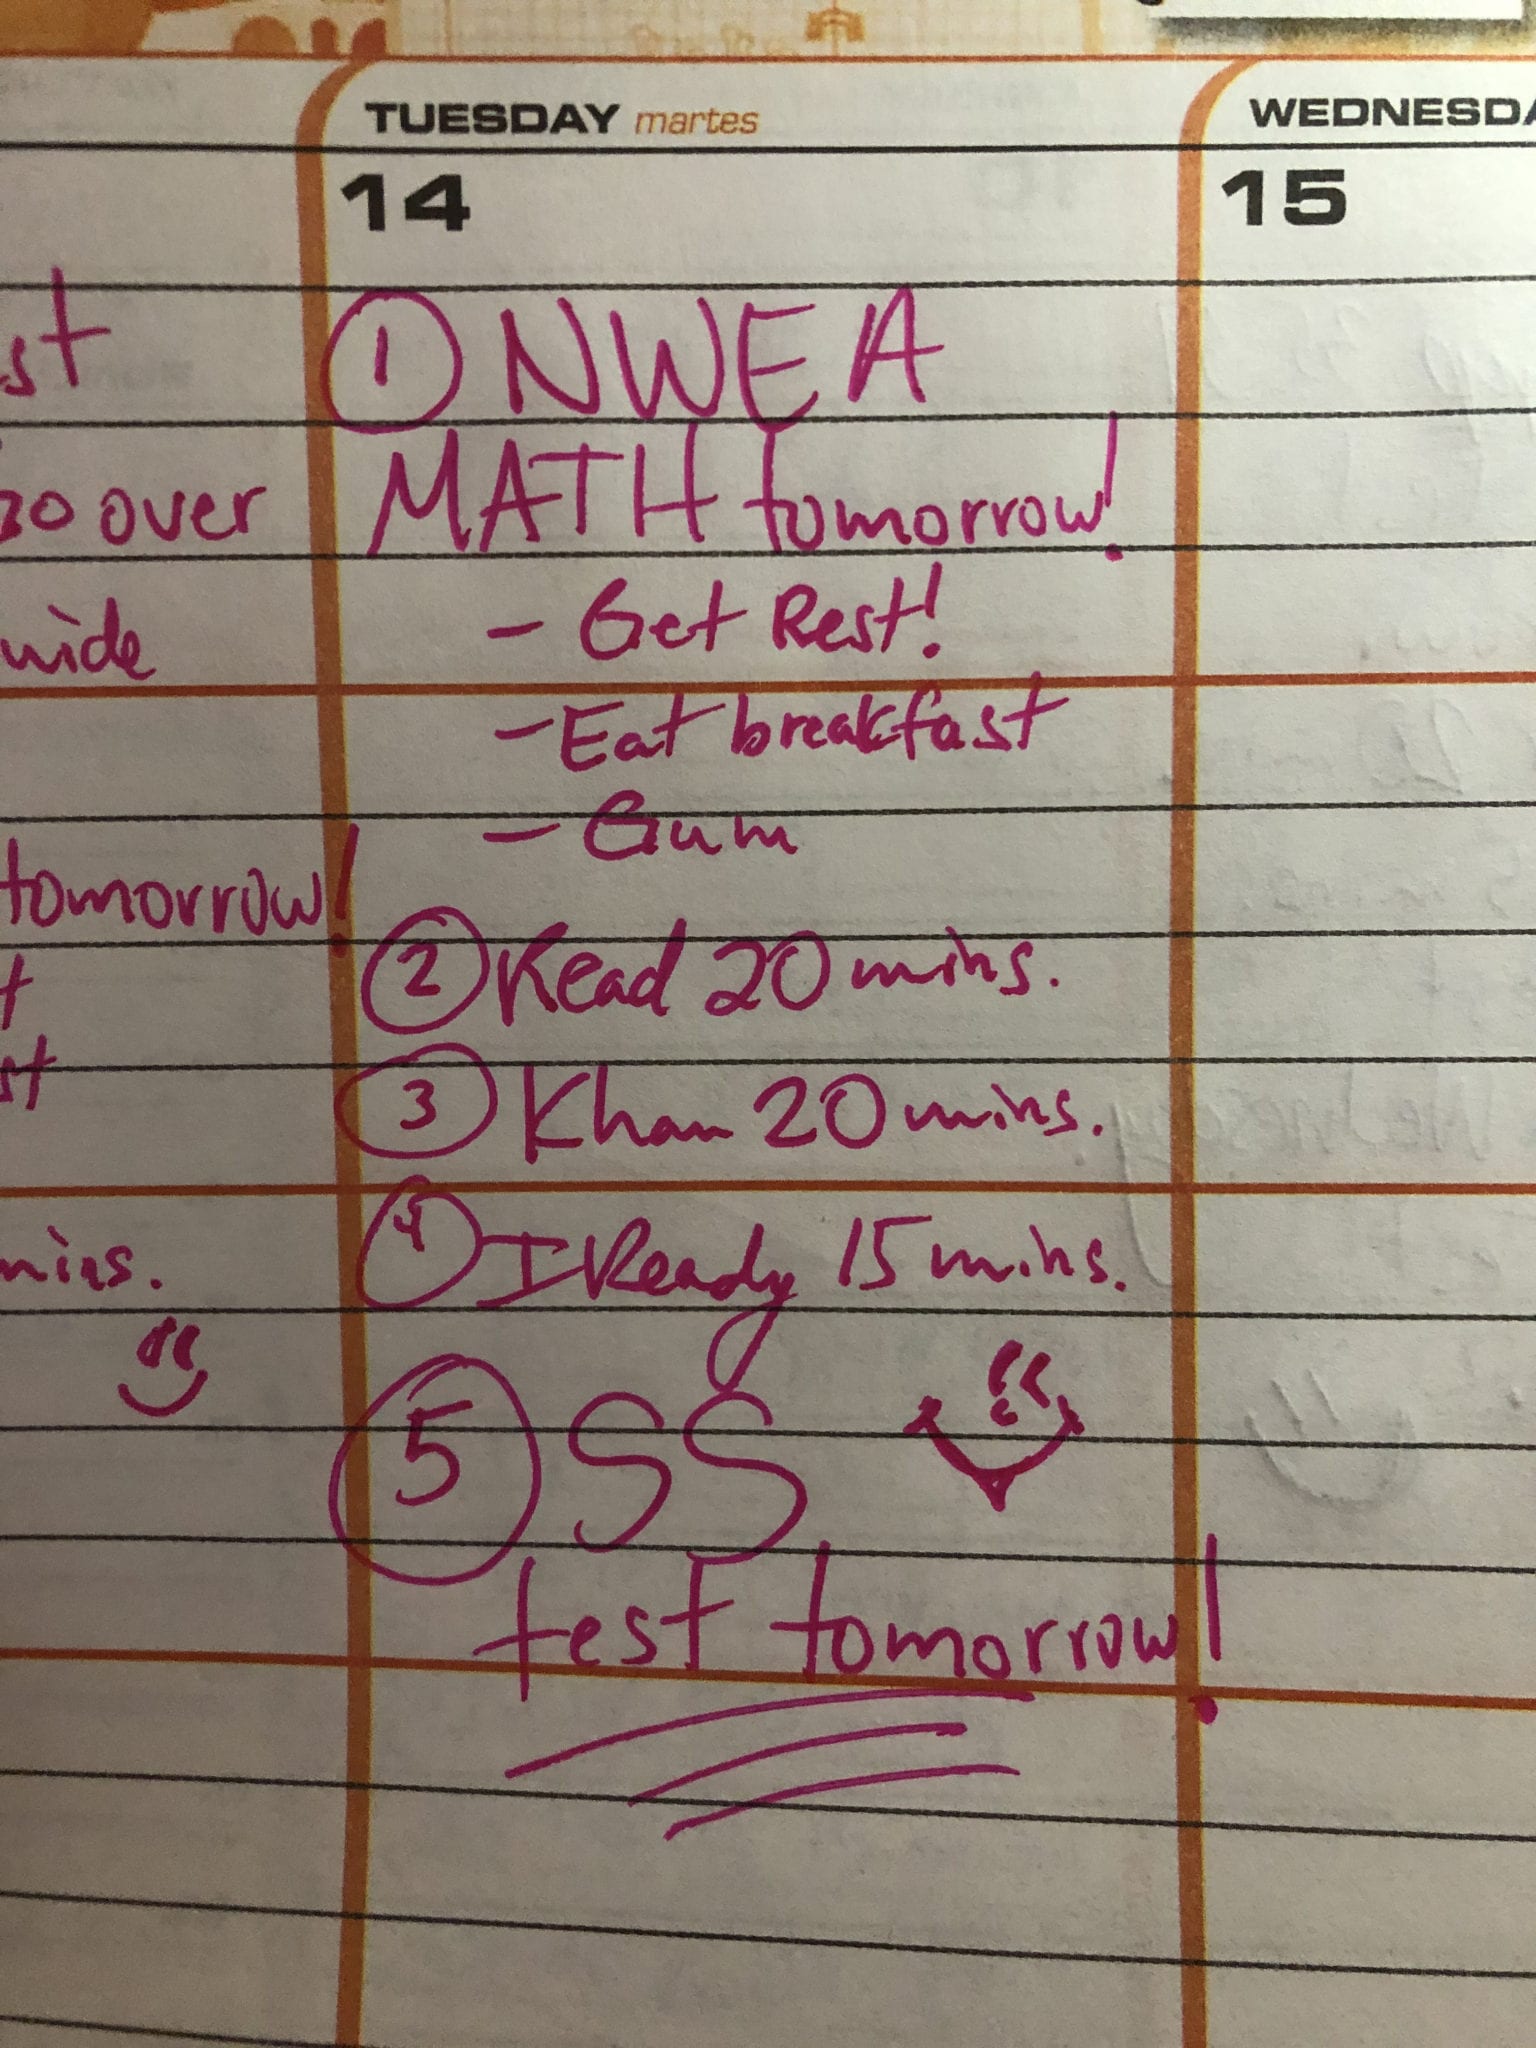 TUESDAY martes
14
① NWEA
MATH tomorrow!
- Get Rest!
- Eat breakfast
- Gum
② Read 20 mins.
③ Khan 20 mins.
④ I Ready 15 mins.
⑤ SS
test tomorrow!
WEDNESDA
15
st
go over
uide
tomorrow!
t
st
mins.